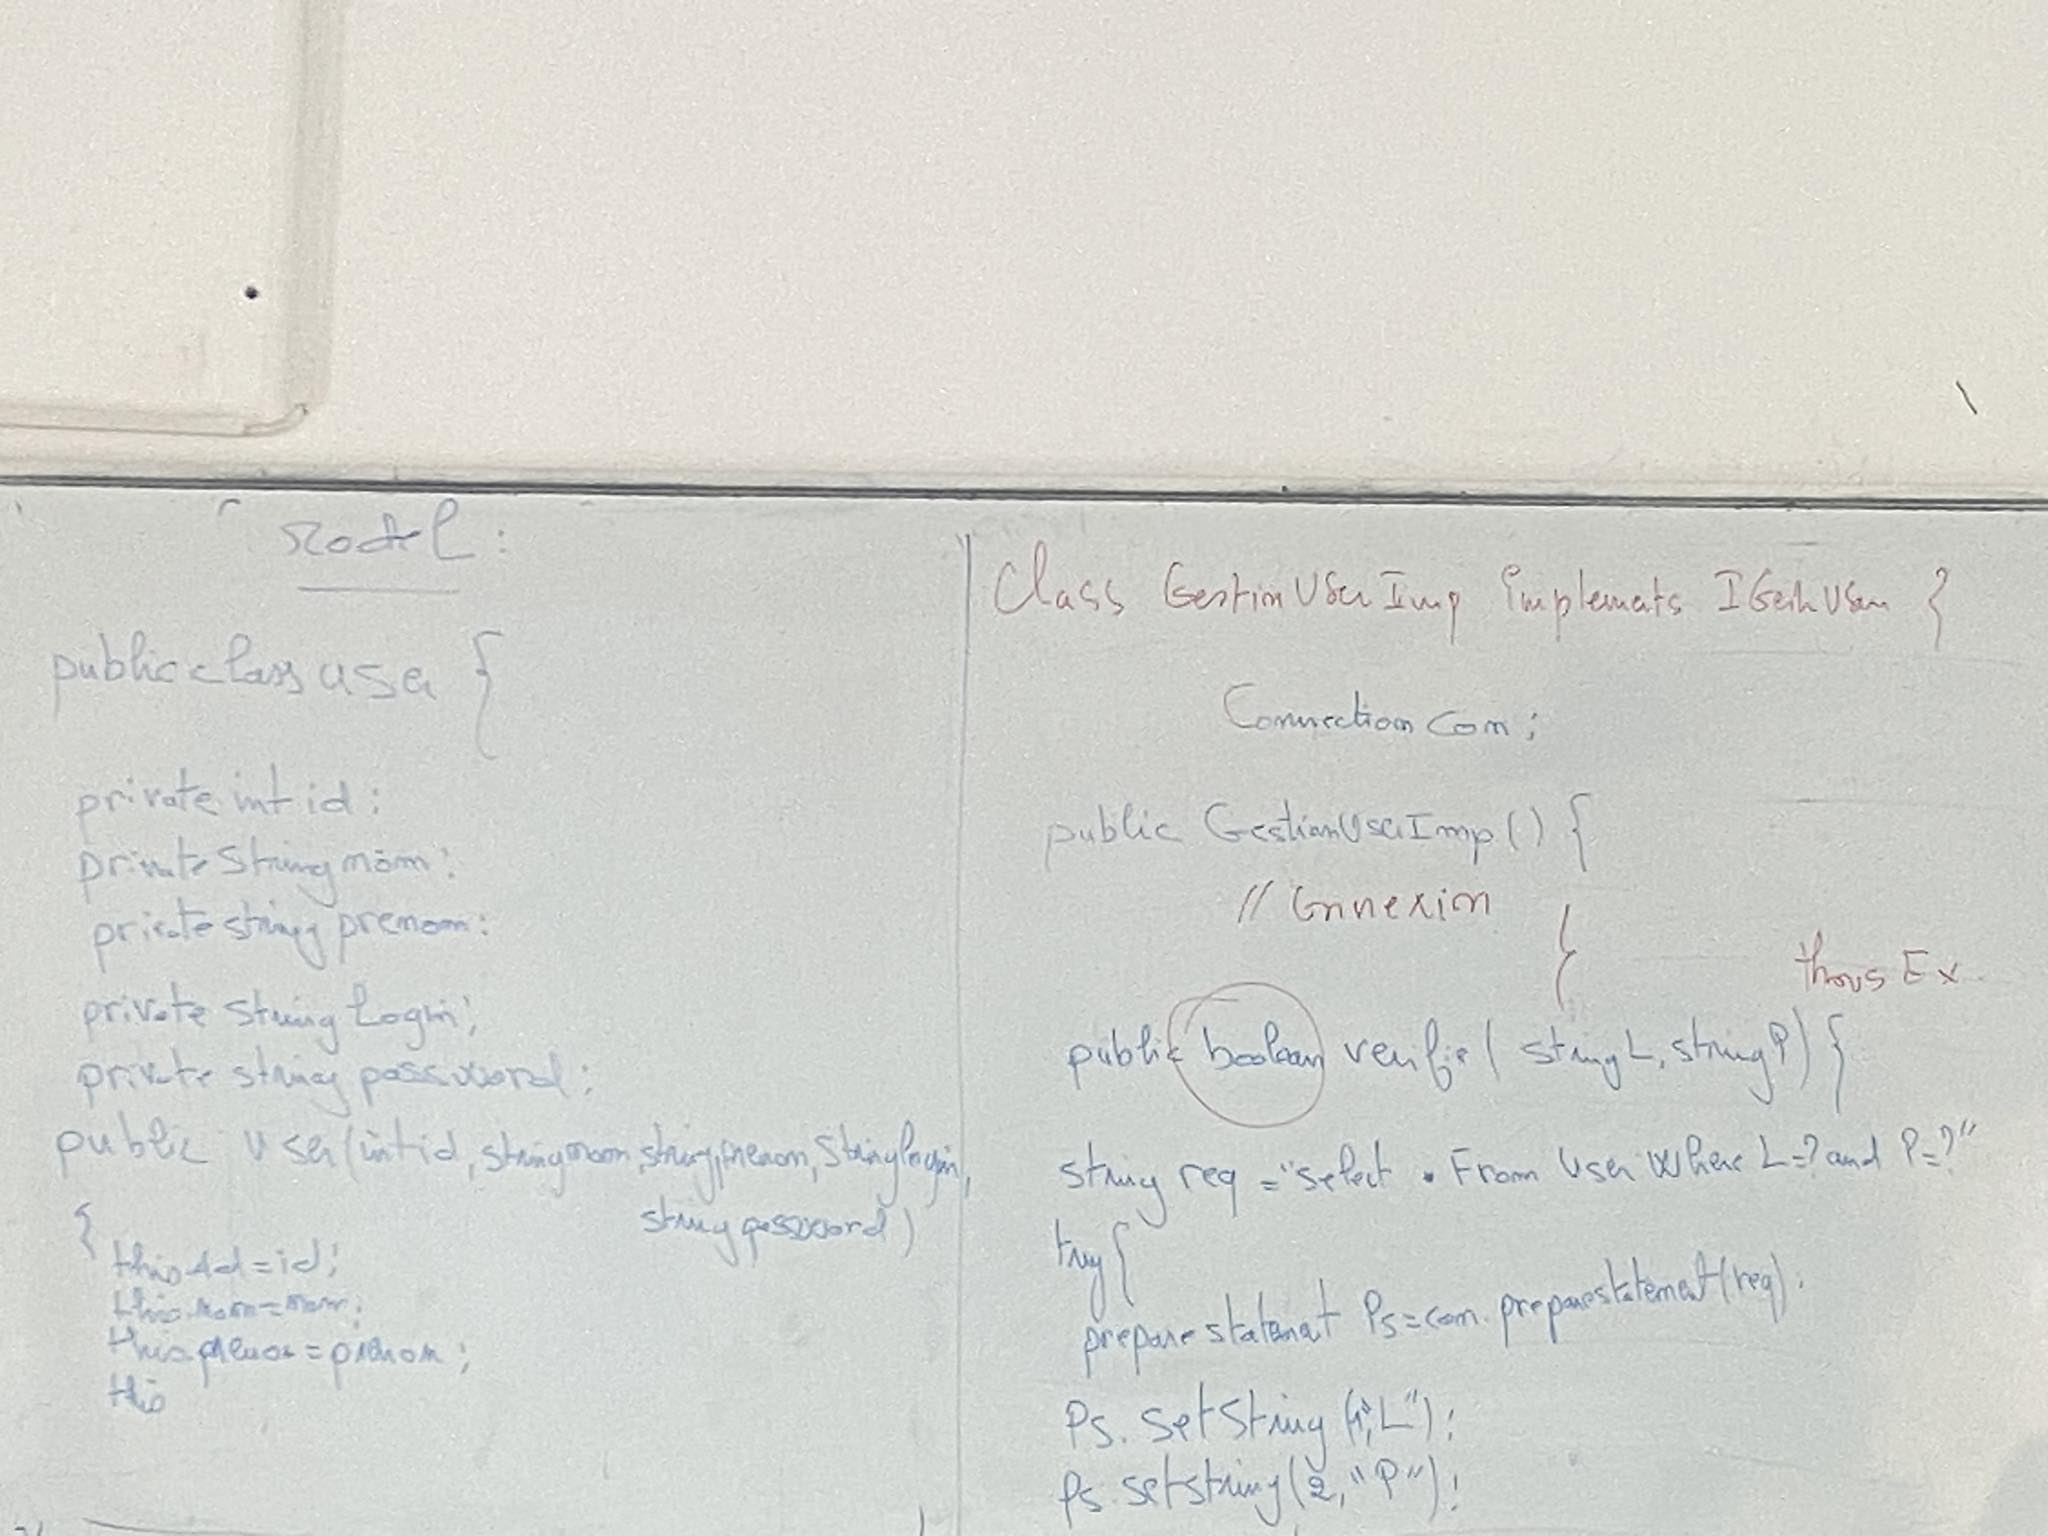 Model :
public class User {
private int id ;
private String nom ;
private string prenom ;
private string Login ;
private string password ;
public User(int id, string nom, string prenom, String login,
string password)
{
this.id = id ;
this.nom = nom ;
this.prenom = prenom ;
this
Class GestionUserImp implements IGestUser {
Connection con ;
public GestionUserImp() {
// Connexion
}
throws Ex
public boolean verifie( string L, string P) {
string req = "select * From User Where L=? and P=?"
try {
prepare statement Ps = con. prepare statement (req) ;
Ps. setString (1, "L") ;
Ps. setstring (2, "P") ;